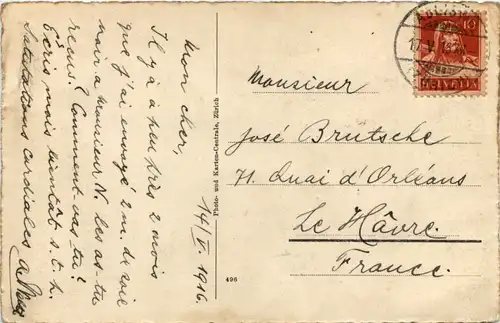 Mon cher,
Il y a à peu près 2 mois
que j'ai envoyé 2 m. de voie
noir a Monsieur N. Les as-tu
reçus? Comment vas-tu?
Écris mais bientôt s. t. h.
Salutations Cordiales
14/V. 1916.
Photo- und Karten-Centrale, Zürich
496
Monsieur
José Brutsche
71. Quai d'Orléans
Le Hâvre.
France.
10
HELVETIA